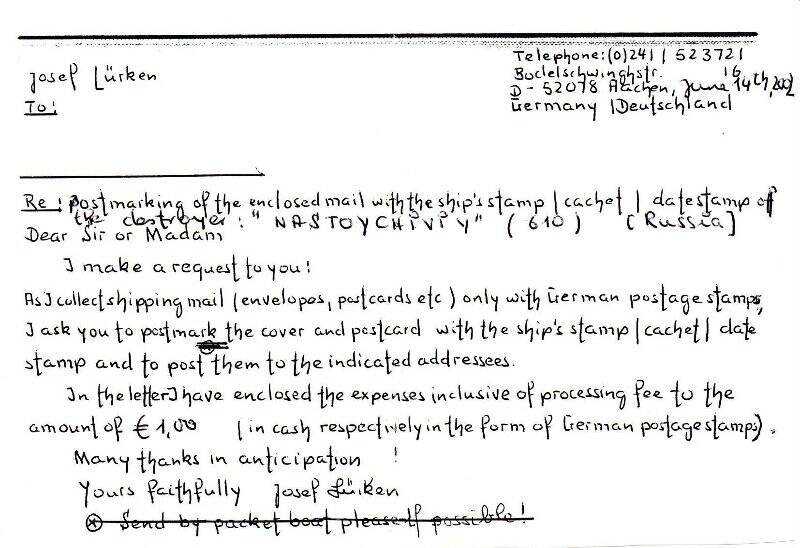 Telephone: (0)241 | 523721
Josef Lürken
Bodelschwinghstr. 16
To:
D - 52078 Aachen, June 14th, 2002
Germany | Deutschland
Re: Postmarking of the enclosed mail with the ship's stamp | cachet | datestamp of
the destroyer: "NASTOYCHiViY" (610) [Russia]
Dear Sir or Madam
I make a request to you!
As I collect shipping mail (envelopes, postcards etc) only with German postage stamps,
I ask you to postmark the cover and postcard with the ship's stamp | cachet | date
stamp and to post them to the indicated addressees.
In the letter I have enclosed the expenses inclusive of processing fee to the
amount of € 1,00 (in cash respectively in the form of German postage stamps).
Many thanks in anticipation !
Yours faithfully Josef Lürken
⊗ Send by packet boat please if possible!